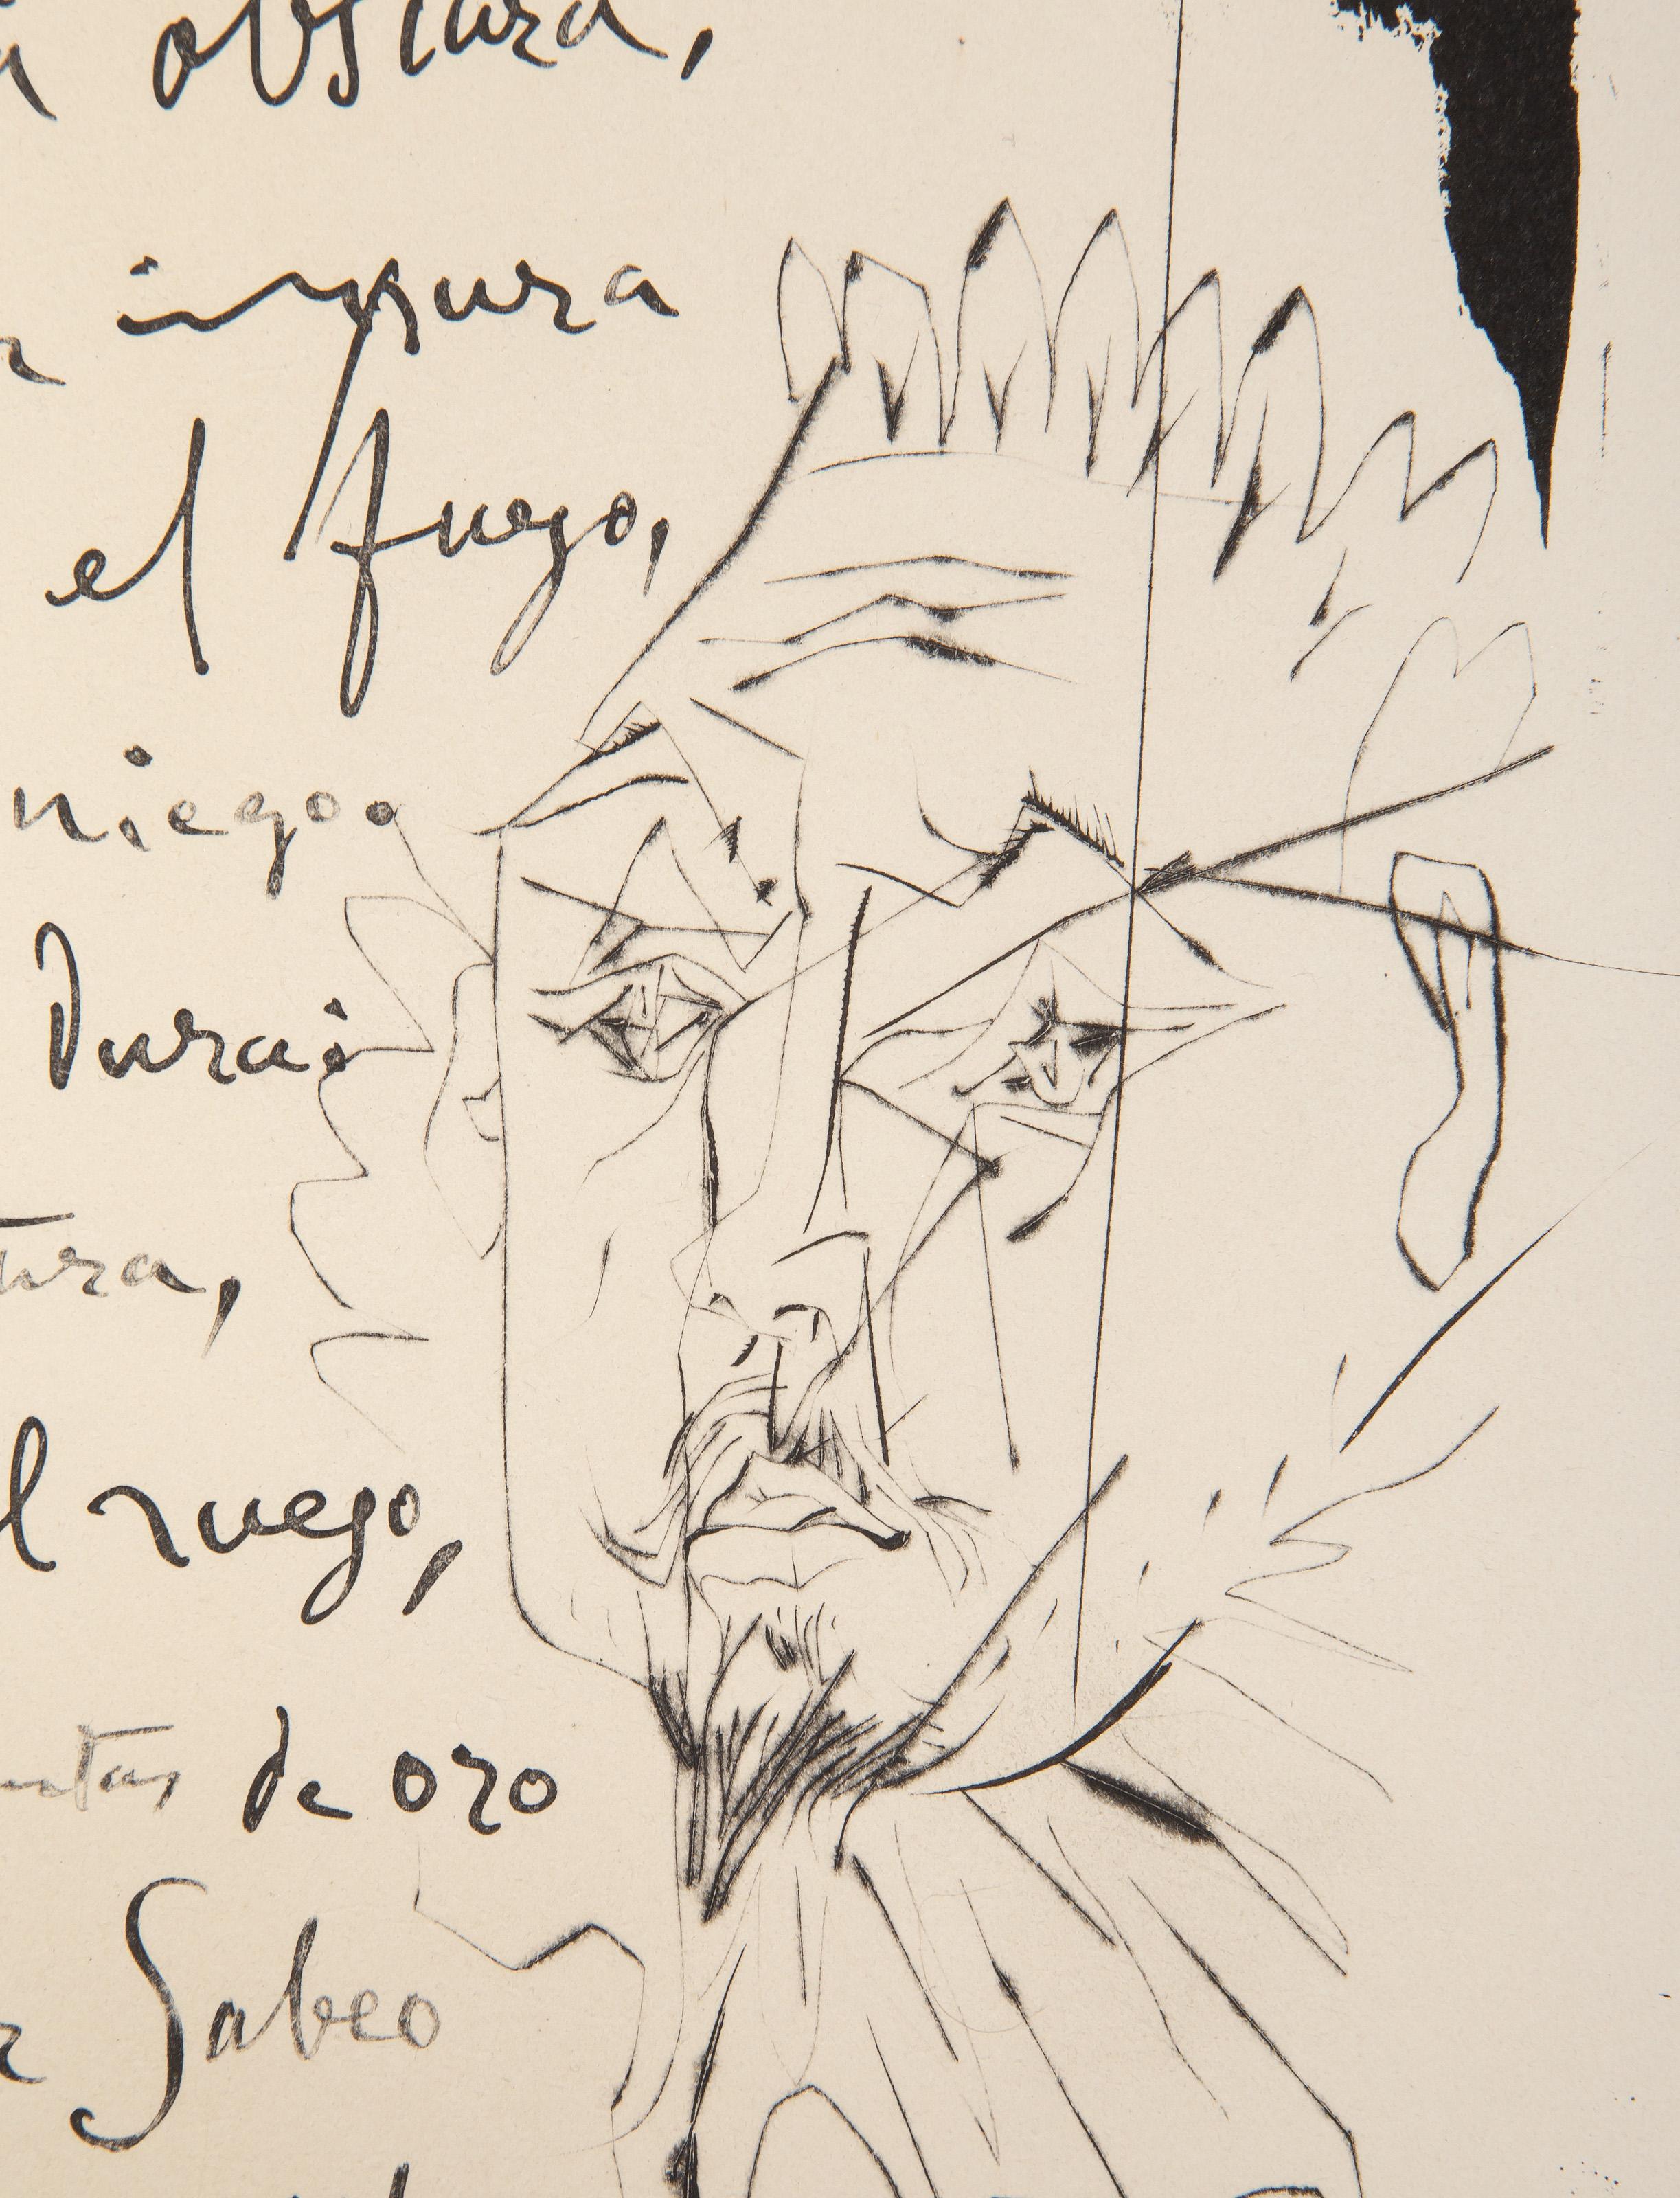 obscura,
impura
el fuego,
niego.
dura;
tura,
l ruego,
de oro
Sabeo